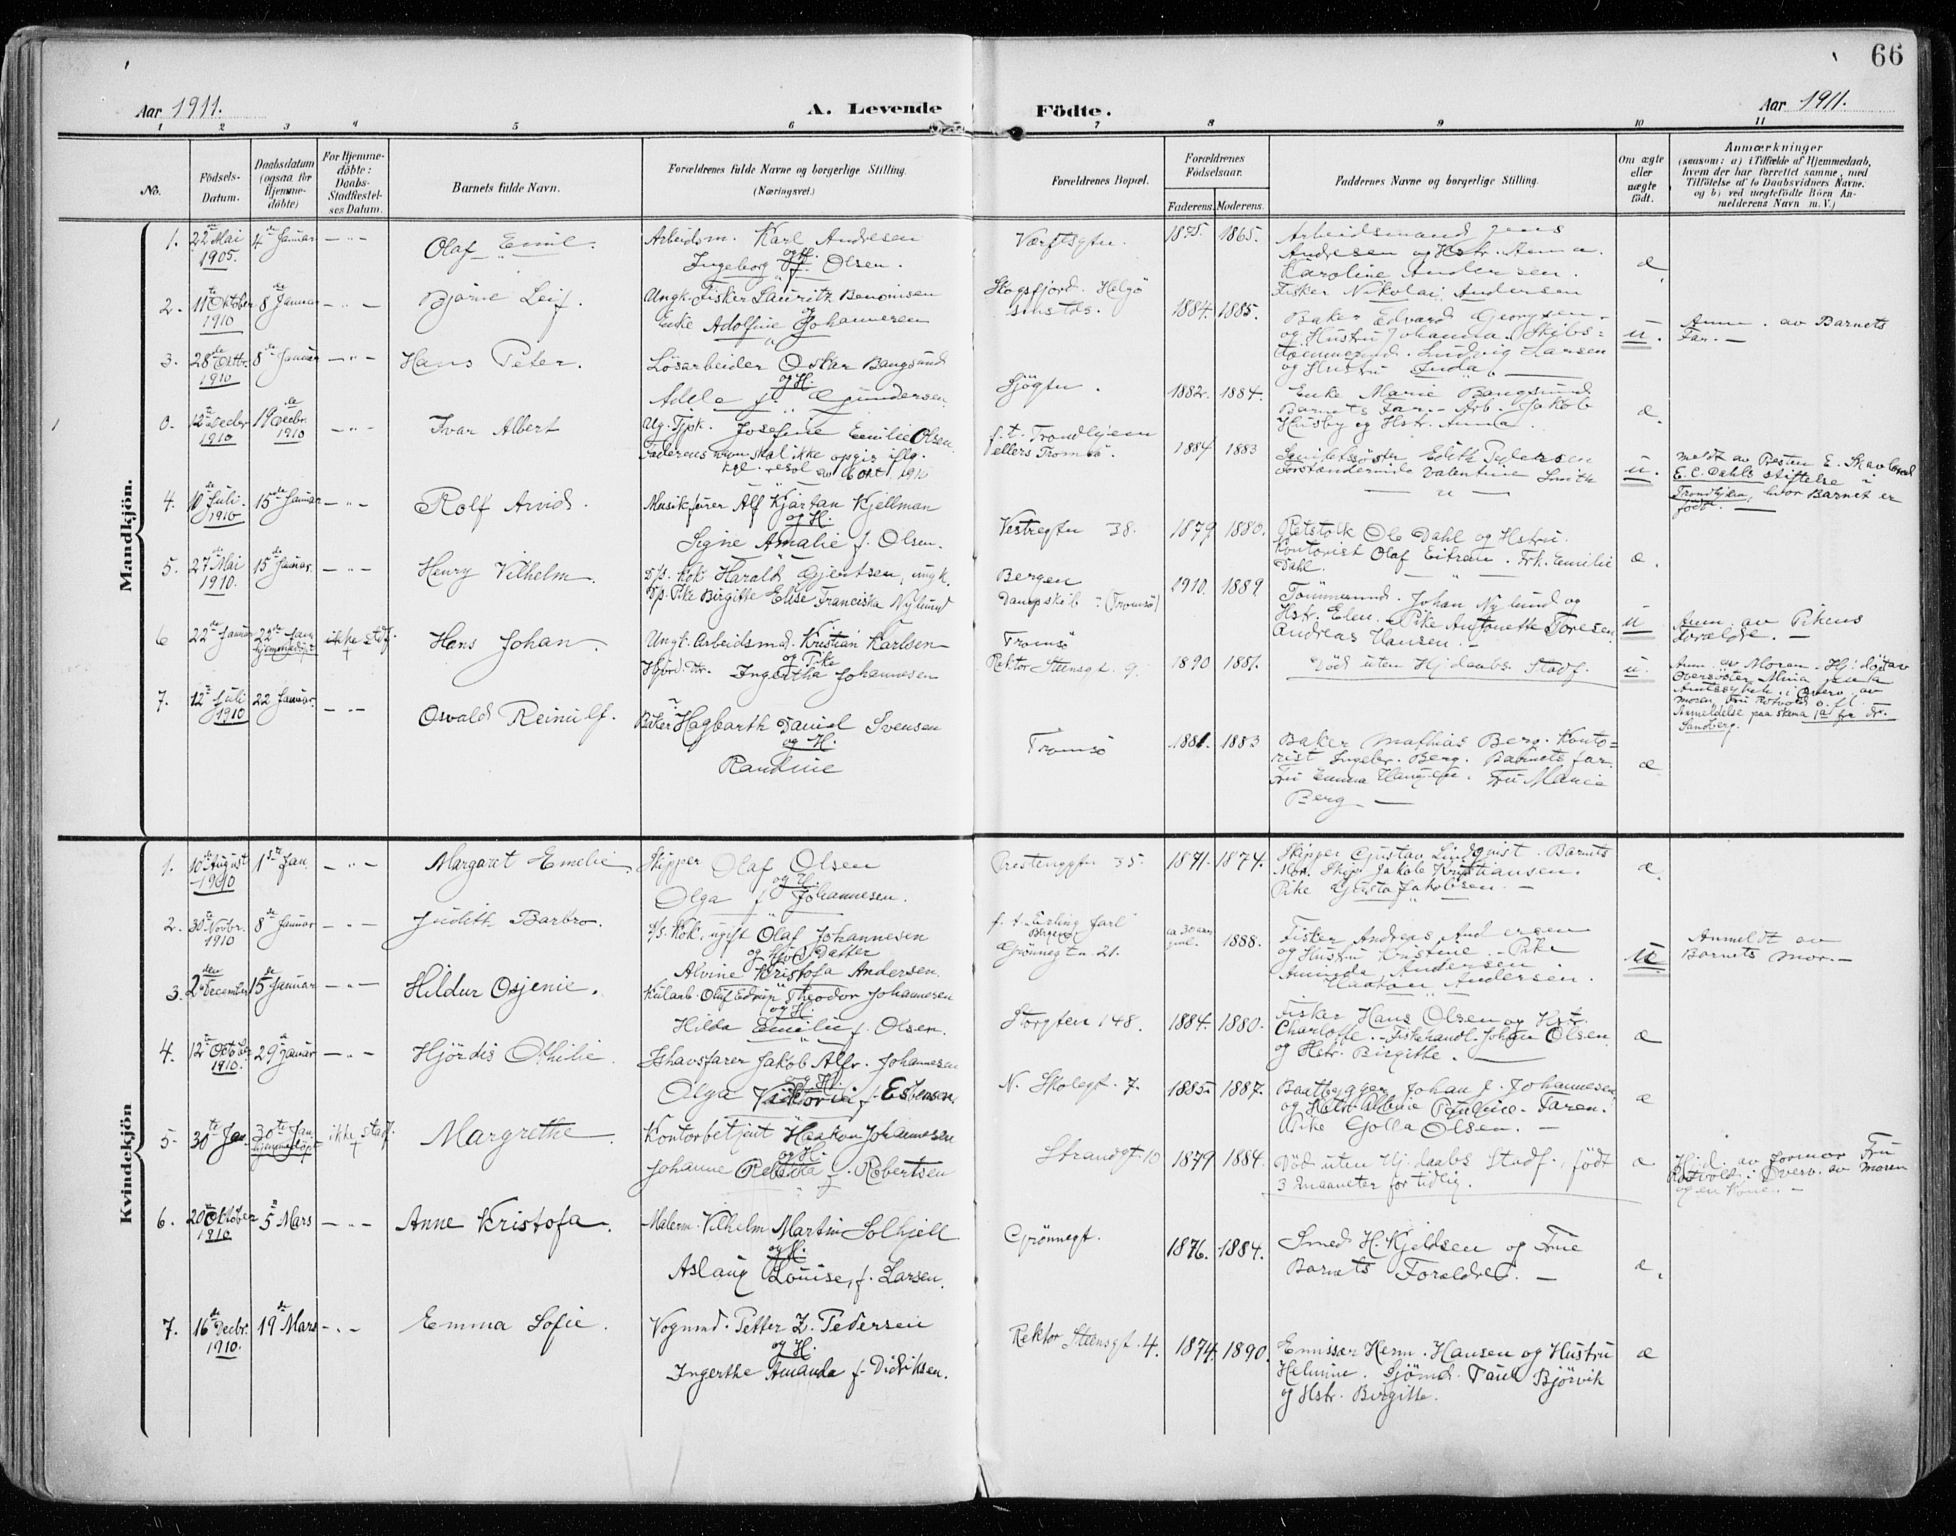 66
Aar 1911.
A. Levende Födte.
Aar 1911.
1 2 3 4 5 6 7 8 9 10 11
No.
Födsels-Datum.
Daabsdatum (ogsaa for Hjemme-döbte)
For Hjemme-döbte: Daabs-Stadfæstel-ses Datum.
Barnets fulde Navn.
Forældrenes fulde Navne og borgerlige Stilling. (Næringsvei.)
Forældrenes Bopæl.
Forældrenes Födselsaar.
Faderens. Moderens.
Faddernes Navne og borgerlige Stilling.
Om ægte eller uægte født.
Anmærkninger
(saasom: a) i Tilfælde af Hjemmedaab,
hvem der har forrettet samme, med
Tilföielse af to Daabsvidners Navne.
og b) ved uegtefödte Börn An-
melderens Navn m. V.)
Mandkjön.
1. 22de Mai 1905. 4de Januar — " — Olaf Emil.
Arbeidsm. Karl Andresen
og H.
Ingeborg f. Olsen.
Værftsgtn. 1875. 1865.
Arbeidsmand Jens
Andresen og Hstr. Anna
Karoline Andersen.
Fisker Nikolai Andersen
æ
2. 11te Oktober 1910 8de Januar — " — Bjarne Leif.
Ungk. Fisker Laurith Benonisen
og
Enke Adolfine Johannesen
Skogsfjord. Helgö
1884. 1885.
Baker Edvard Georgsen
og Hustru Johanna. Skibs=
tømmermd. Ludvig Larsen
og Hustru Inda.
u.
Anm. av Barnets
Far. —
3. 28de Oktbr. 1910 8de Januar — " — Hans Peter.
Løsarbeider Oskar Bangsund
og H.
Adele f. Gundersen.
Sjögtn. 1882. 1884.
Enke Marie Bangsund
Barnets Far. Arb. Jakob
Husby og Hstr. Anna.
æ.
0. 12te Decbr 1910 19de Decbr. 1910 — " — Ivar Albert
Ug. Tjpk. Josefine Emilie Olsen
Faderens navn skal ikke opgis iflg.
kgl. resol av 6 okt 1910
f. t. Trondhjem
ellers Tromsö.
1884 1883
Edith Petersen
Forstanderinde Valentine Smith
u.
meldt av Presten E.
E. C. Dahls stiftelse i
Trondhjem, hvor Barnet er
født. —
4. 10de Juli 1910 15de Januar — " — Rolf Arvid.
Musikfører Alf Kjartan Kjellman
og H.
Signe Amalie f. Olsen.
Vestregtn 38. 1879 1880.
Ole Dahl og Hstru.
Kontorist Olaf Eitrem. Frk. Emilie
Dahl.
æ.
5. 27de Mai 1910. 15de Januar. — " — Henry Vilhelm.
D/s. Kok Harald Gjentsen, ungk.
Tjp. Pike Birgitte Elise Franciska Nylund
Bergen
Dampskib (Tromsö)
1910. 1889
Tömmermd. Johan Nylund og
Hstr. Elen. Pike Antonette Toresen
Andreas Hansen. —
u
Anm. av Pikens
Foræeldre. —
6 22de Januar 22de Jan hjemmedøpt ikke stdf. Hans Johan.
Ungk. Arbeidsmd. Kristian Karlsen
og Pike
Ingertha Johannesen
Tromsö
Rektor Steensgt. 9. 1890 1881.
Död uten Hj.daabs Stadf.
u.
Anm. av Moren. Hj. döpt av
Anmeldelse paa stana 1a fr Fr.
Sandberg.
7. 12te Juli 1910 22 Januar. — " — Osvald Reinulf.
Baker Hagbarth Daniel Svensen
og H.
Randine
Tromsö 1881. 1883
Baker Mathias Berg. Konto=
rist Ingebr. Berg. Barnets far.
Fru Emma Fru Marie
Berg —
æ
Kvindekjön
1. 10de August 1910 1ste Jan. — " — Margaret Emelie
Skipper Olaf Olsen
og H.
Olga f. Johannesen.
Prestenggtn 35. 1871. 1874.
Skipper Gustav Lindquist. Barnets
Mor. Skip. Jakob Kristiansen.
Pike Jakobsen. —
æ.
2. 30te Novbr. 1910 8de Januar — " — Judith Barbro.
S/s. Kok, ugift Olaf Johannesen
og Hjv. Datter
Alvine Kristofa Andersen.
f. t. Erling Jarl
Bergen
Grönnegtn 21.
ca 30 aar gml. 1888.
Fisker Andreas Andersen
og Hustru Kristine. Pike
Amanda Andersen
Haakon Andersen.
u
Anmeldt av
Barnets mor. —
3. 2den December 15de Januar — " — Hildur Osjenie.
Kularb. Oluf Edrup Theodor Johannesen
og H.
Hilda Emilie f. Olsen.
Storgten 148. 1884. 1880.
Fisker Hans Olsen og Hstr.
Charlotte. Fiskehandl. Johan Olsen
og Hstr. Birgitte.
æ
4. 12te Oktober 1910. 29de Januar — " — Hjördis Othilie.
Ishavsfarer Jakob Alfr. Johannesen
og H.
Olga Viktoria f. Esbensen.
N. Skolegt. 7. 1885. 1887.
Baatbygger Johan J. Johannesen
og Hstr. Petrine. Faren.
Pike Golla Olsen. —
æ
5. 30te Jan. 30te Jan. hjemmedøpt ikke stadf. Margrethe.
Kontorbetjent Haakon Johannesen
og H.
Johanne f. Robertsen
Strandgt. 10 1879 1884.
Död uten Hj.daabs Stadf., född
3 Maaneter for tidlig.
æ
Hj.d. av Jormor Fru
Rotvold i Overv. av Moren
og en Kone. —
6. 20de Oktober 1910 5te Mars — " — Anne Kristofa.
Malerm. Vilhelm Martin Solhjell
og H.
Aslaug Louise, f. Larsen.
Grönnegt. 1876. 1884.
Smed H. Kjeldsen og Frue
Barnets Forældre. —
æ.
7. 16de Decbr. 1910. 19de Mars — " — Emma Sofie.
Vognmd. Petter Z. Pedersen
og H.
Ingerthe Amanda f. Didriksen.
Rektor Steensgt. 4. 1874. 1890.
Emissær Herm. Hansen og Hustru
Helmine. Sjömd. Paul Bjørvik
og Hstr. Birgitte.
æ